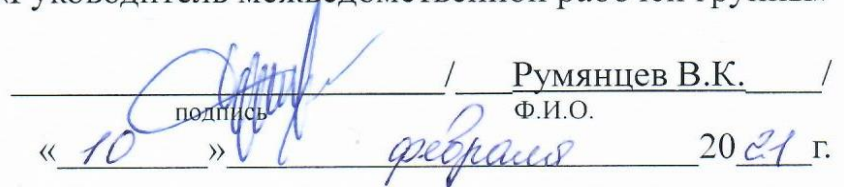 Руководитель межведомственной рабочей группы
/ Румянцев В.К. /
подпись Ф.И.О.
« 10 » февраля 20 21 г.